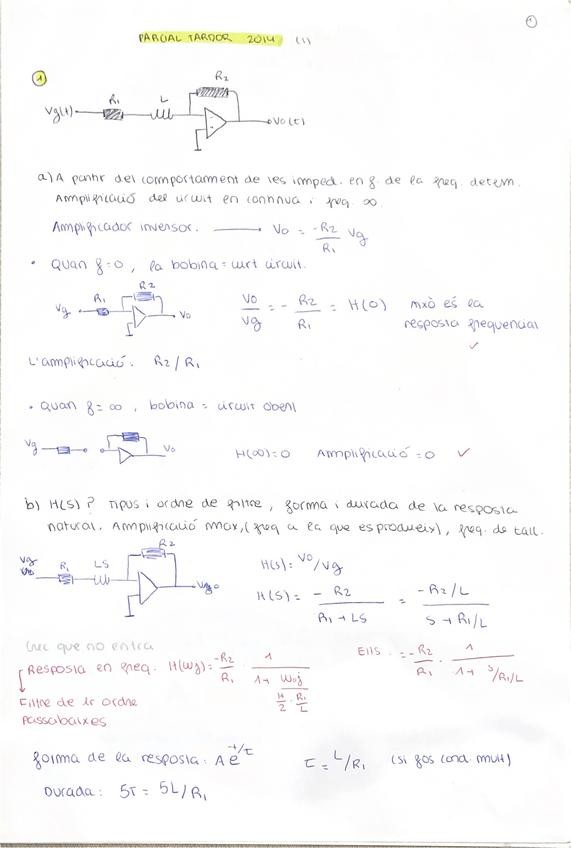 1
PARCIAL TARDOR 2014 (1)
1
R1 L R2
Vg(t) Vo(t)
a) A partir del comportament de les imped. en f. de la freq. determ.
Amplificació del circuit en contínua i freq. ∞.
Amplificador inversor. ——— Vo = -R2/R1 Vg
• Quan f=0, la bobina = curt circuit.
Vg R1 R2 Vo
Vo/Vg = - R2/R1 = H(0) això és la
resposta frequencial ✓
L'amplificació: R2/R1
• Quan f=∞, bobina = circuit obert
Vg Vo H(∞)=0 Amplificació=0 ✓
b) H(s)? Tipus i ordre de filtre, forma i durada de la resposta
natural. Amplificació max, (freq a la que es produeix), freq. de tall.
Vg R1 LS R2
H(s) = Vo/Vg
H(s) = - R2/(R1 + LS) = (-R2/L)/(S + R1/L)
Crec que no entra
Resposta en freq. H(wj) = -R2/R1 · 1/
Ells. = -R2/R1 · 1/(1 + S/R1/L)
Filtre de 1r ordre
passabaixes
forma de la resposta: A e^-t/τ τ = L/R1 (si fos cond. mult)
Durada: 5τ = 5L/R1